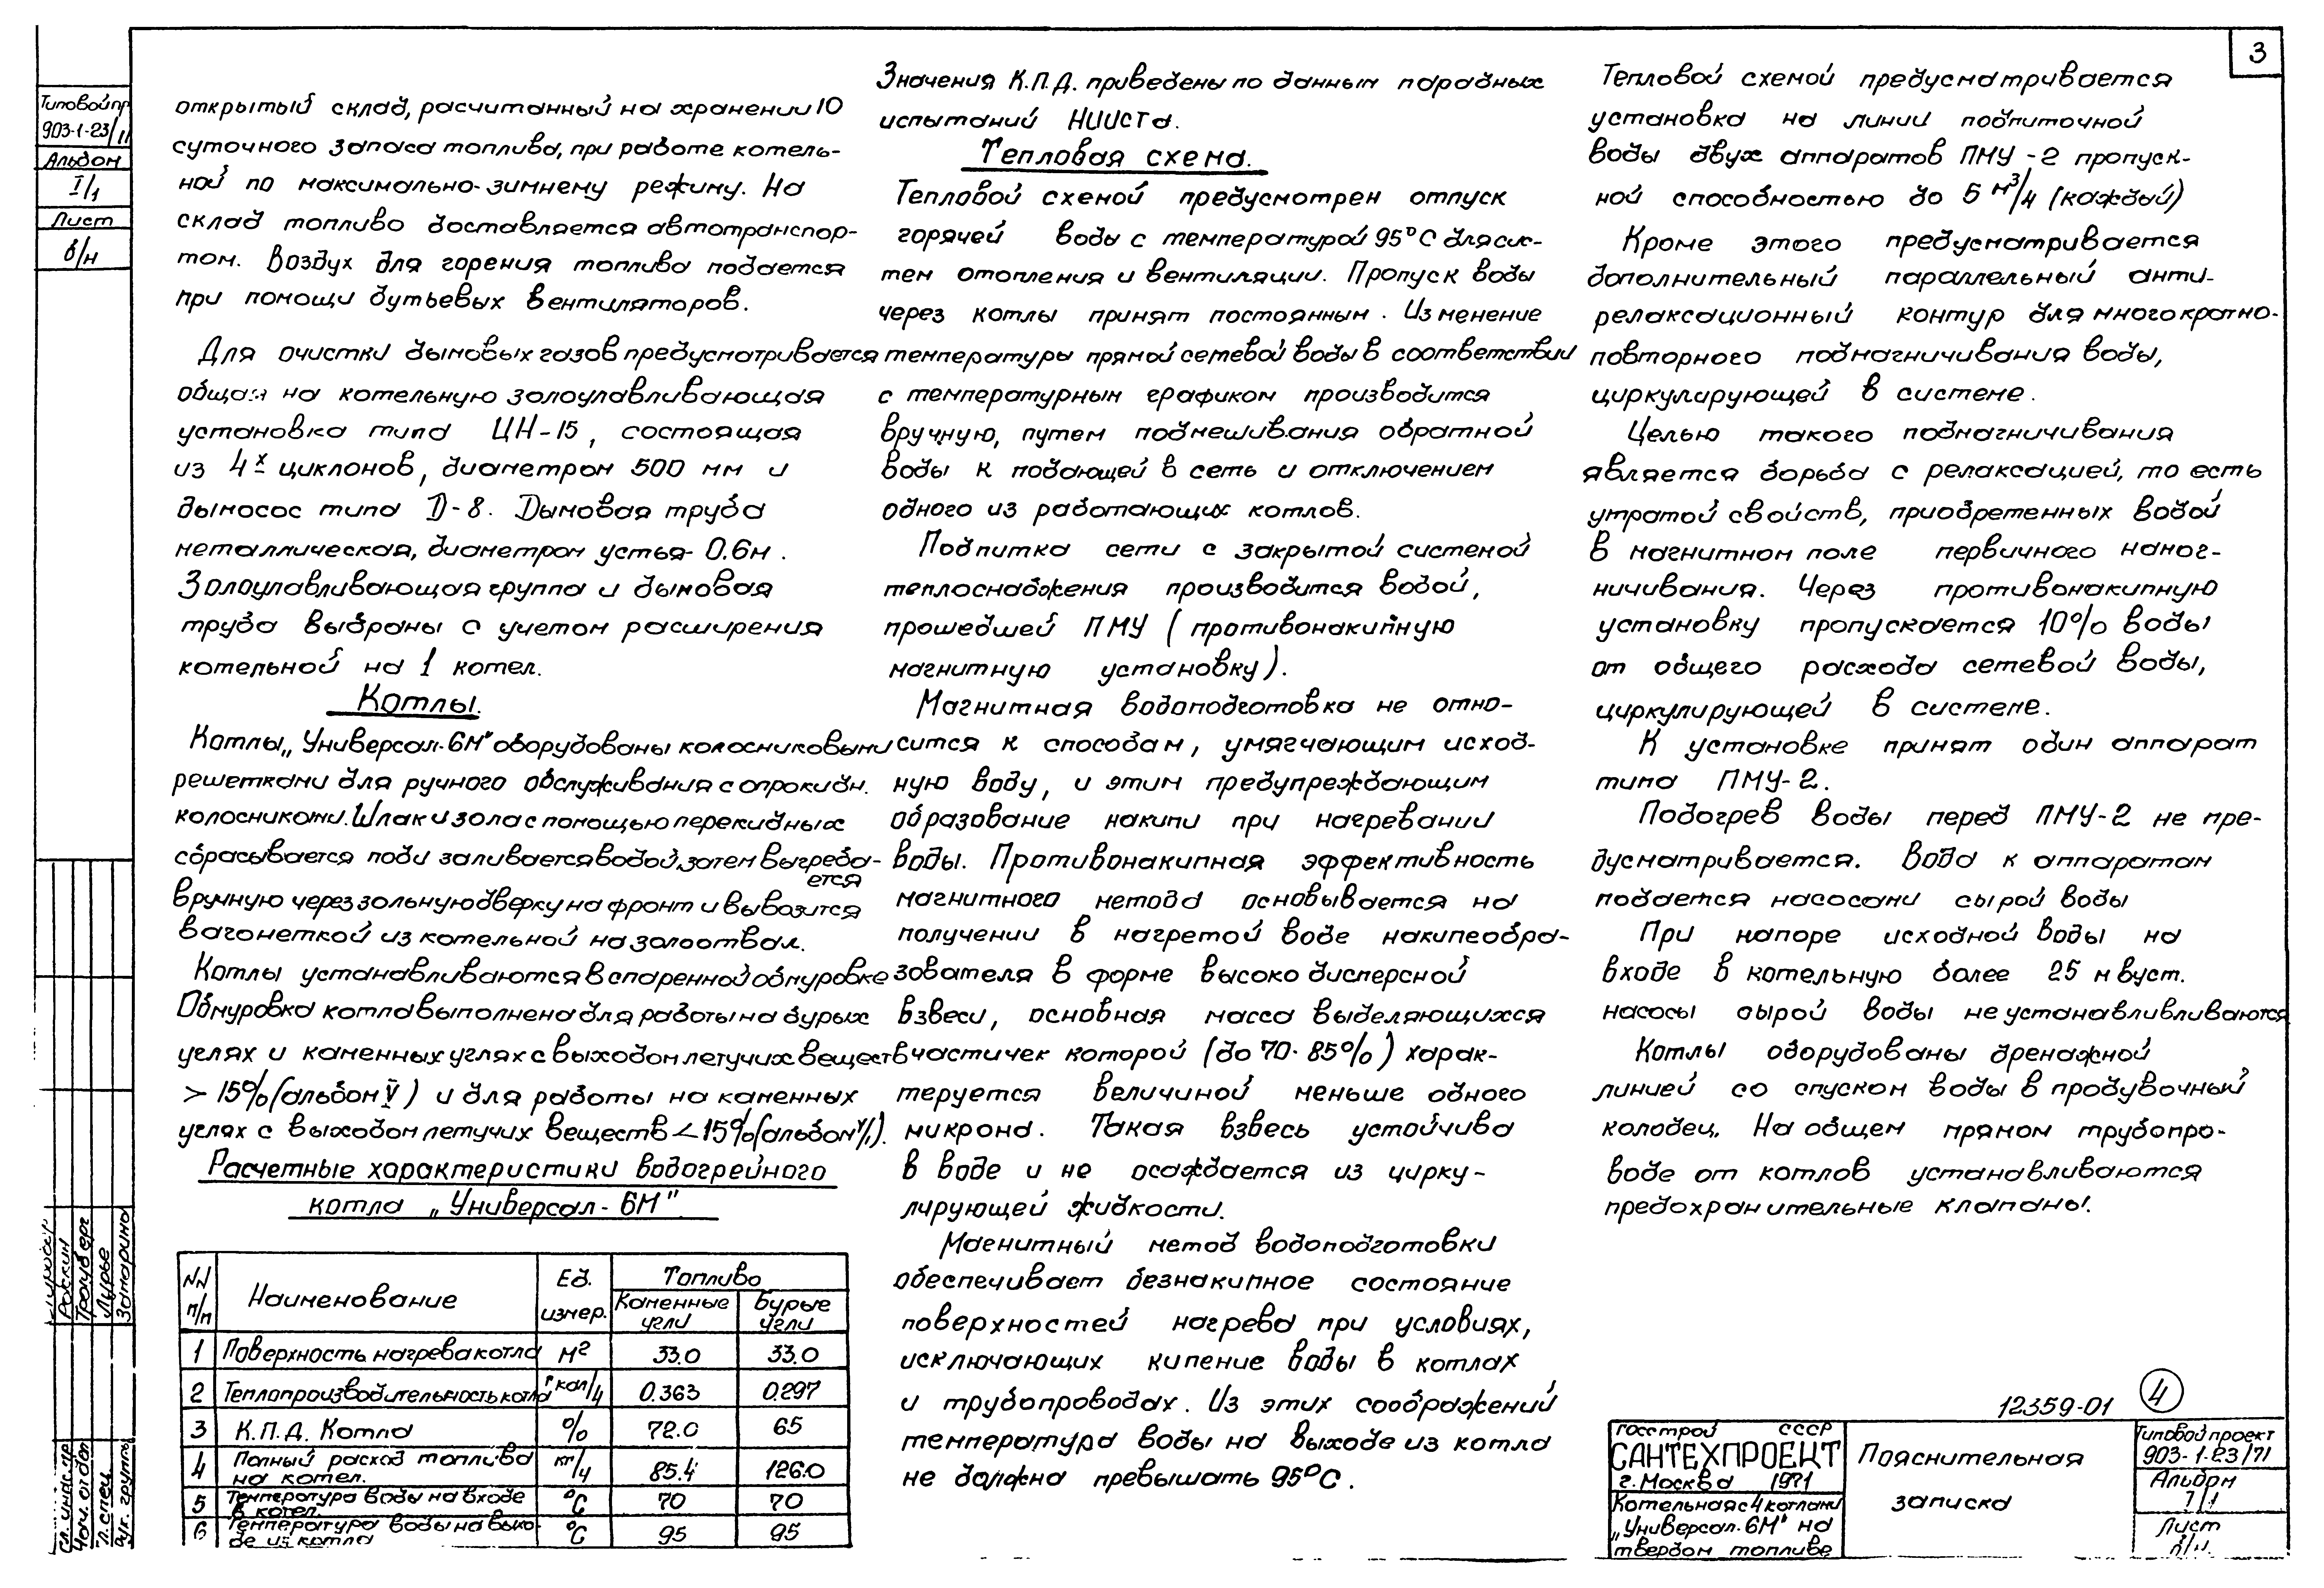 3
Типовой пр
903-1-23/71
Альбом
I/1
Лист
б/н
открытый склад, расчитанный на хранении 10
суточного запаса топлива, при работе котель-
ной по максимально-зимнему режиму. На
склад топливо доставляется автотранспор-
том. Воздух для горения топлива подается
при помощи дутьевых вентиляторов.
Для очистки дымовых газов предусматривается
общая на котельную золоулавливающая
установка типа ЦН-15, состоящая
из 4х циклонов, диаметром 500 мм и
дымосос типа Д-8. Дымовая труба
металлическая, диаметром устья- 0.6м.
Золоулавливающая группа и дымовая
труба выбраны с учетом расширения
котельной на 1 котел.
Котлы.
Котлы „Универсал-6М" оборудованы колосниковыми
решетками для ручного обслуживания с опрокидн.
колосниками. Шлак и зола с помощью перекидных
сбрасывается под и заливается водой, затем выгреба-
ется
вручную через зольную дверку на фронт и вывозится
вагонеткой из котельной на золоотвал.
Котлы устанавливаются в спаренной обмуровке
Обмуровка котла выполнена для работы на бурых
углях и каменных углях с выходом летучих веществ
> 15% (альбом V) и для работы на каменных
углях с выходом летучих веществ < 15% (альбом VI).
Расчетные характеристики водогрейного
котла „Универсал-6М".
NN п/п
Наименование
Ед. измер.
Топливо
Каменные угли
Бурые угли
1 Поверхность нагрева котла м2 33.0 33.0
2 Теплопроизводительность котла Гкал/ч 0.363 0.297
3 К.П.Д. Котла % 72.0 65
4 Полный расход топлива на котел. кг/ч 85.4 126.0
5 Температура воды на входе в котел. °С 70 70
6 Температура воды на выхо-
де из котла °С 95 95
Значения К.П.Д. приведены по данным парадных
испытаний НИИСТа.
Тепловая схема.
Тепловой схемой предусмотрен отпуск
горячей воды с температурой 95°С для сис-
тем отопления и вентиляции. Пропуск воды
через котлы принят постоянным. Изменение
температуры прямой сетевой воды в соответствии
с температурным графиком производится
вручную, путем подмешивания обратной
воды к подающей в сеть и отключением
одного из работающих котлов.
Подпитка сети с закрытой системой
теплоснабжения производится водой,
прошедшей ПМУ (противонакипную
магнитную установку).
Магнитная водоподготовка не отно-
сится к способам, умягчающим исход-
ную воду, и этим предупреждающим
образование накипи при нагревании
воды. Противонакипная эффективность
магнитного метода основывается на
получении в нагретой воде накипеобра-
зователя в форме высоко дисперсной
взвеси, основная масса выделяющихся
частичек которой (до 70-85%) харак-
теруется величиной меньше одного
микрона. Такая взвесь устойчива
в воде и не осаждается из цирку-
лирующей жидкости.
Магнитный метод водоподготовки
обеспечивает безнакипное состояние
поверхностей нагрева при условиях,
исключающих кипение воды в котлах
и трубопроводах. Из этих соображений
температура воды на выходе из котла
не должна превышать 95°С.
Тепловой схемой предусматривается
установка на линии подпиточной
воды двух аппаратов ПМУ-2 пропуск-
ной способностью до 5 м3/ч (каждый)
Кроме этого предусматривается
дополнительный параллельный анти-
релаксационный контур для многократно-
повторного подмагничивания воды,
циркулирующей в системе.
Целью такого подмагничивания
является борьба с релаксацией, то есть
утратой свойств, приобретенных водой
в магнитном поле первичного намаг-
ничивания. Через противонакипную
установку пропускается 10% воды
от общего расхода сетевой воды,
циркулирующей в системе.
К установке принят один аппарат
типа ПМУ-2.
Подогрев воды перед ПМУ-2 не пре-
дусматривается. Вода к аппаратам
подается насосами сырой воды
При напоре исходной воды на
входе в котельную более 25 м в.уст.
насосы сырой воды не устанавливливаются
Котлы оборудованы дренажной
линией со спуском воды в продувочный
колодец. На общем прямом трубопро-
воде от котлов устанавливаются
предохранительные клапаны.
12359-01 4
Госстрой СССР
САНТЕХПРОЕКТ
г. Москва 1971
Котельная с 4 котлами
„Универсал-6М" на
твердом топливе
Пояснительная
записка
Типовой проект
903-1-23/71
Альбом
I/1
Лист
б/н.
Рабкин
Гл. инж. пр
Нач. отдел
Лурье
Гл. спец.
Рук. группы